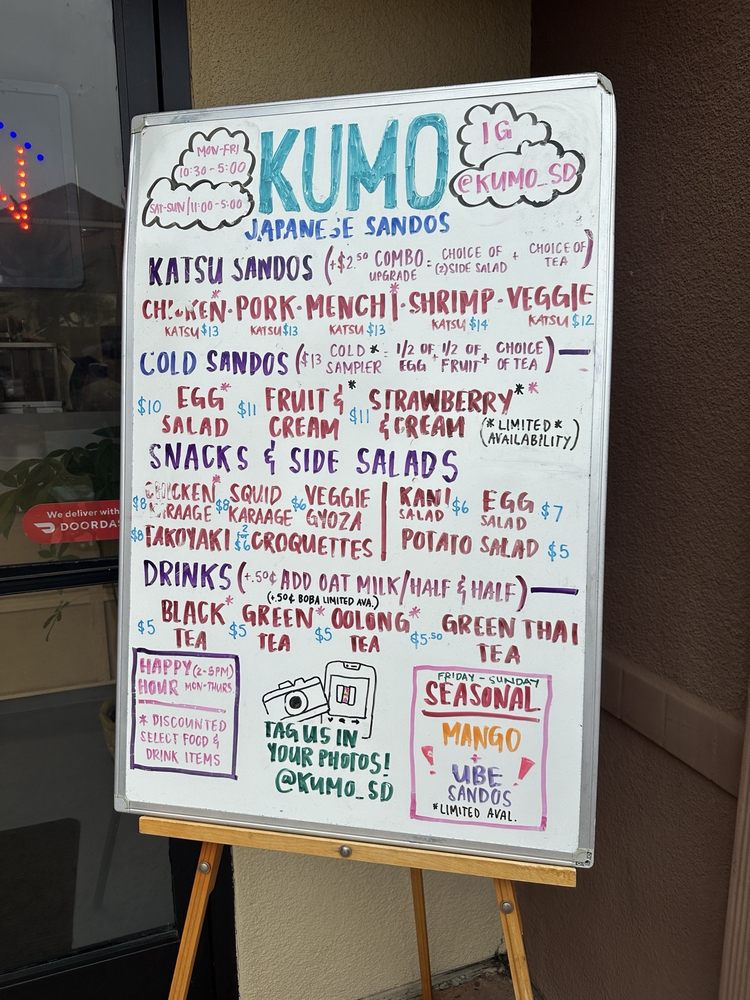 KUMO
JAPANESE SANDOS
MON-FRI
10:30-5:00
SAT-SUN/11:00-5:00
IG
@KUMO_SD
KATSU SANDOS (+$2.50 COMBO UPGRADE = CHOICE OF (2) SIDE SALAD + CHOICE OF TEA)
CHICKEN* · PORK · MENCHI* · SHRIMP · VEGGIE
KATSU $13 KATSU $13 KATSU $13 KATSU $14 KATSU $12
COLD SANDOS ($13 COLD* SAMPLER = 1/2 OF EGG + 1/2 OF FRUIT + CHOICE OF TEA)
$10 EGG* SALAD $11 FRUIT & CREAM* $11 STRAWBERRY & CREAM** (*LIMITED* AVAILABILITY)
SNACKS & SIDE SALADS
$8 CHICKEN* KARAAGE $8 SQUID KARAAGE $6 VEGGIE GYOZA
KANI SALAD $6 EGG SALAD $7
$8 TAKOYAKI 2 for $6 CROQUETTES
POTATO SALAD $5
DRINKS (+.50¢ ADD OAT MILK/HALF & HALF)
(+.50¢ BOBA LIMITED AVA.)
$5 BLACK* TEA $5 GREEN* TEA $5 OOLONG* TEA $5.50 GREEN THAI TEA
HAPPY HOUR (2-5PM) MON-THURS
* DISCOUNTED
SELECT FOOD &
DRINK ITEMS
TAG US IN
YOUR PHOTOS!
@KUMO_SD
FRIDAY - SUNDAY
SEASONAL
MANGO
+
UBE
SANDOS
*LIMITED AVAL.
We deliver with
DOORDAS